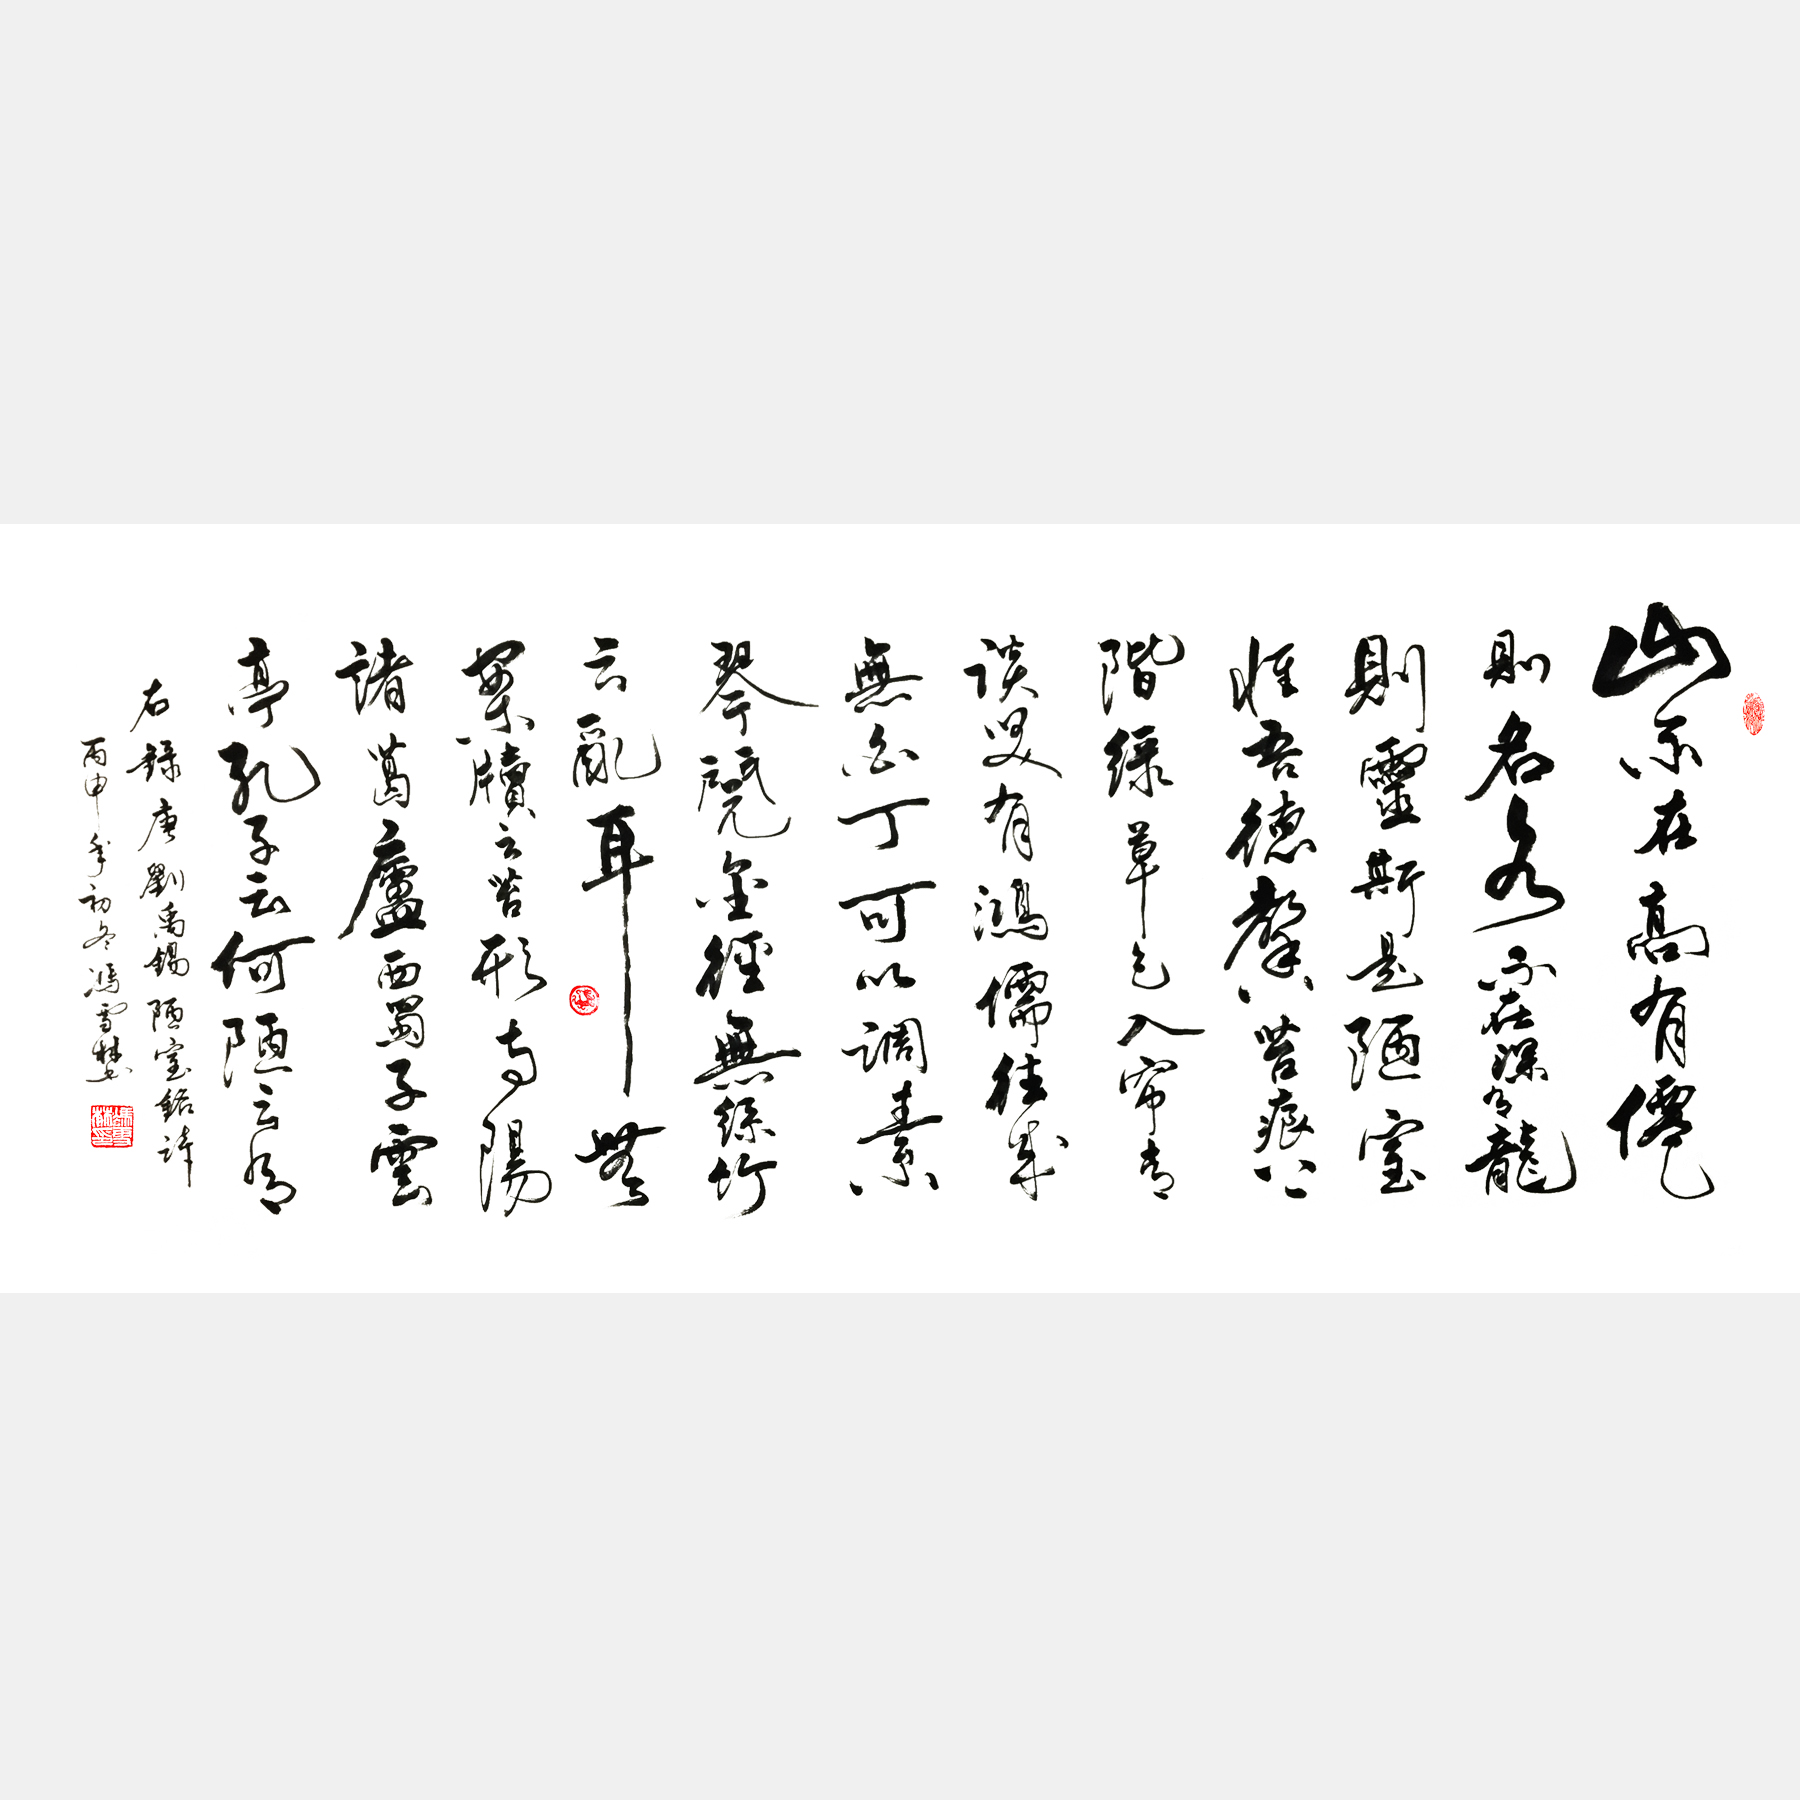 山不在高有僊
則名水不在深有龍
則靈斯是陋室
惟吾德馨苔痕上
階綠草色入帘青
談笑有鴻儒往來
無白丁可以調素
琴閱金經無絲竹
之亂耳無
案牘之勞形南陽
諸葛廬西蜀子雲
亭孔子云何陋之有
右錄唐劉禹錫陋室銘詩
丙申年初冬馮雪林书